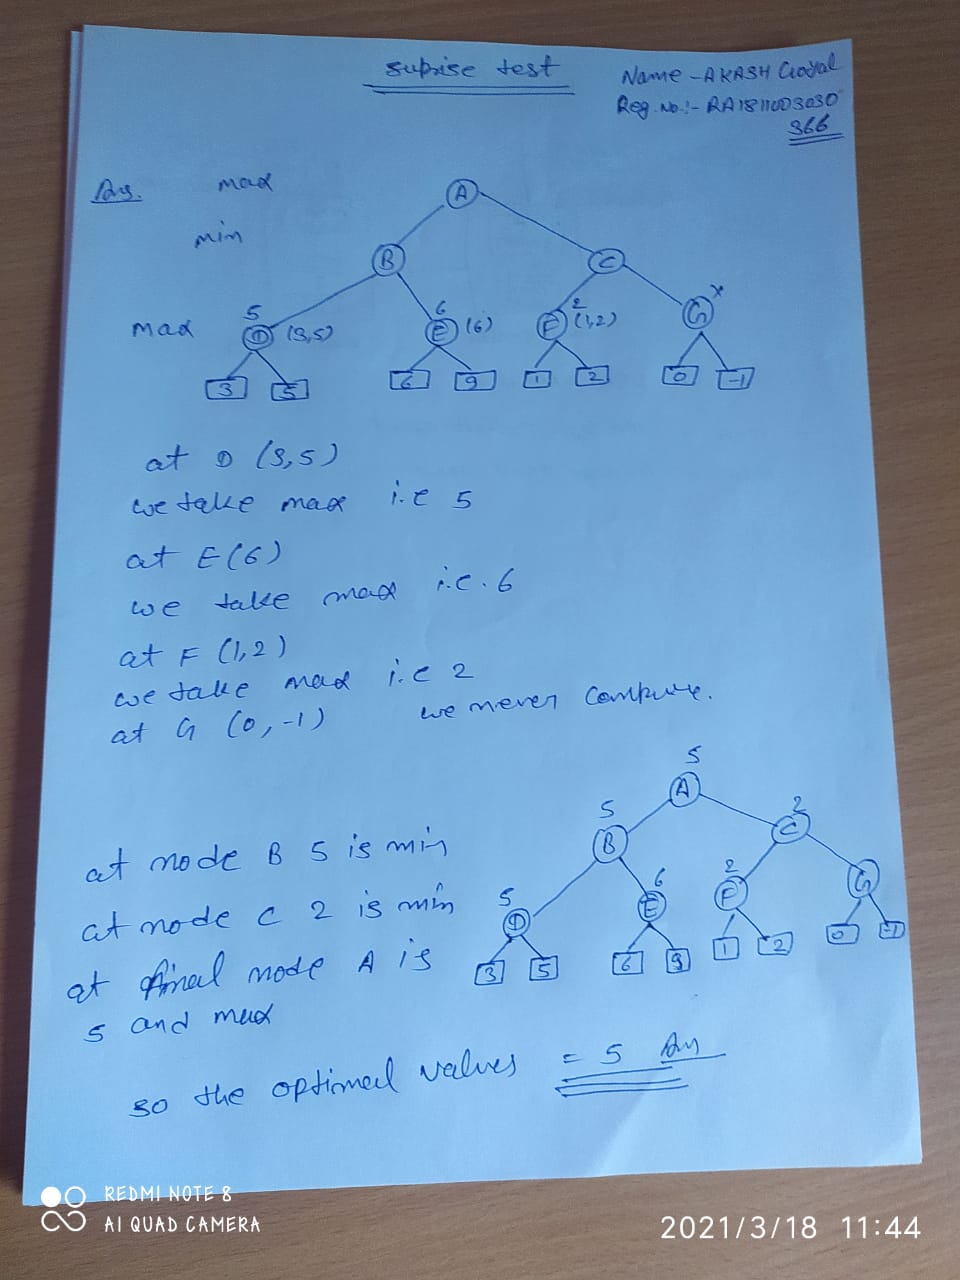 suprise test
Name - AKASH Goyal
Reg. No.:- RA1811003030
366
Ans. max
A
min
B C
5 6 2 x
max D (3,5) E (6) F (1,2) G
3 5 6 9 1 2 0 -1
at D (3,5)
we take max i.e 5
at E (6)
we take max i.e. 6
at F (1,2)
we take max i.e 2
at G (0,-1) we never compute.
5
A
5 2
B C
at node B 5 is min
6 2
5 E F G
at node C 2 is min D
3 5 6 9 1 2 0 -1
at final node A is
5 and max
so the optimal values = 5 Ans
REDMI NOTE 8
AI QUAD CAMERA
2021/3/18 11:44